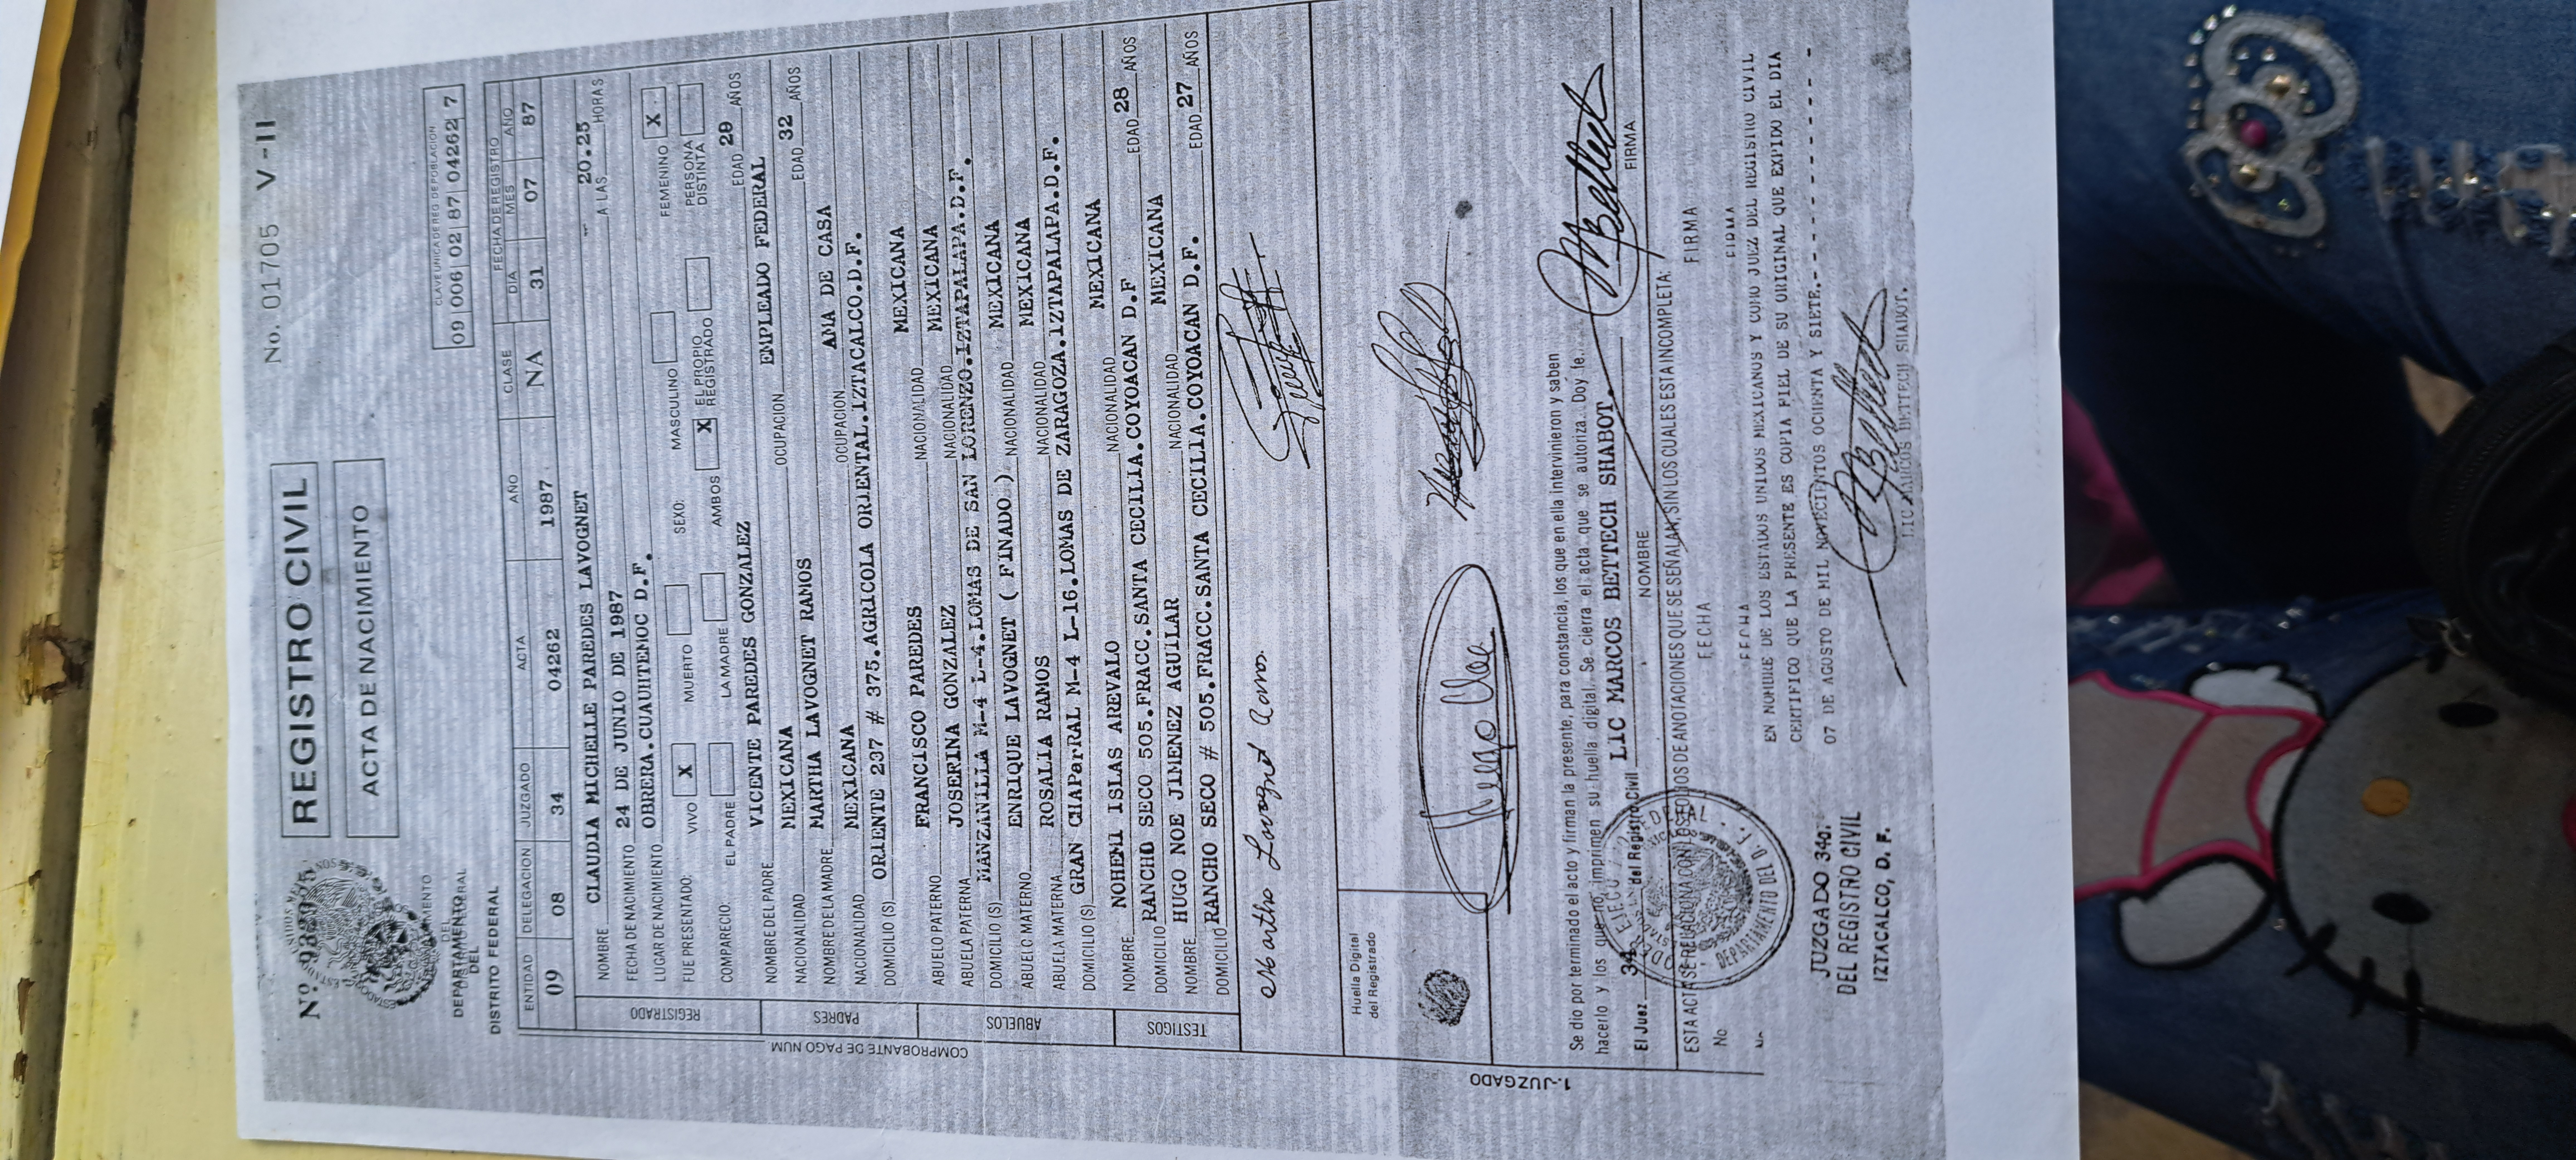 No. 01705 V-II
Nº
REGISTRO CIVIL
ACTA DE NACIMIENTO
DEPARTAMENTO
DEL
DISTRITO FEDERAL
CLAVE UNICA DE REG. DE POBLACION
09 006 02 87 04262 7
ENTIDAD DELEGACION JUZGADO ACTA AÑO CLASE FECHA DE REGISTRO
DIA MES AÑO
09 08 34 04262 1987 NA 31 07 87
REGISTRADO
NOMBRE CLAUDIA MICHELLE PAREDES LAVOGNET
FECHA DE NACIMIENTO 24 DE JUNIO DE 1987 A LAS 20.25 HORAS
LUGAR DE NACIMIENTO OBRERA.CUAUHTEMOC D.F.
FUE PRESENTADO: VIVO X MUERTO SEXO: MASCULINO FEMENINO X
COMPARECIO: EL PADRE LA MADRE AMBOS X EL PROPIO REGISTRADO PERSONA DISTINTA
PADRES
NOMBRE DEL PADRE VICENTE PAREDES GONZALEZ EDAD 29 AÑOS
NACIONALIDAD MEXICANA OCUPACION EMPLEADO FEDERAL
NOMBRE DE LA MADRE MARTHA LAVOGNET RAMOS EDAD 32 AÑOS
NACIONALIDAD MEXICANA OCUPACION AMA DE CASA
DOMICILIO (S) ORIENTE 237 # 375.AGRICOLA ORIENTAL.IZTACALCO.D.F.
ABUELOS
ABUELO PATERNO FRANCISCO PAREDES NACIONALIDAD MEXICANA
ABUELA PATERNA JOSEFINA GONZALEZ NACIONALIDAD MEXICANA
DOMICILIO (S) MANZANILLA M-4 L-4.LOMAS DE SAN LORENZO.IZTAPALAPA.D.F.
ABUELO MATERNO ENRIQUE LAVOGNET ( FINADO ) NACIONALIDAD MEXICANA
ABUELA MATERNA ROSALIA RAMOS NACIONALIDAD MEXICANA
DOMICILIO (S) GRAN CHAPARRAL M-4 L-16.LOMAS DE ZARAGOZA.IZTAPALAPA.D.F.
TESTIGOS
NOMBRE NOHEMI ISLAS AREVALO NACIONALIDAD MEXICANA EDAD 28 AÑOS
DOMICILIO RANCHO SECO 505.FRACC.SANTA CECILIA.COYOACAN D.F
NOMBRE HUGO NOE JIMENEZ AGUILAR NACIONALIDAD MEXICANA EDAD 27 AÑOS
DOMICILIO RANCHO SECO # 505.FRACC.SANTA CECILIA.COYOACAN D.F.
COMPROBANTE DE PAGO NUM
Martha Lavognet Ramos
Huella Digital
del Registrado
1.-JUZGADO
Se dio por terminado el acto y firman la presente, para constancia, los que en ella intervinieron y saben
hacerlo y los que no, imprimen su huella digital. Se cierra el acta que se autoriza. Doy fe.
El Juez 34 del Registro Civil LIC MARCOS BETTECH SHABOT.
NOMBRE FIRMA
ESTA ACTA SE RELACIONA CON LOS DE ANOTACIONES QUE SE SEÑALAN, SIN LOS CUALES ESTA INCOMPLETA.
No FECHA FIRMA
FECHA FIRMA
DEPARTAMENTO DEL D. F.
EN NOMBRE DE LOS ESTADOS UNIDOS MEXICANOS Y COMO JUEZ DEL REGISTRO CIVIL
CERTIFICO QUE LA PRESENTE ES COPIA FIEL DE SU ORIGINAL QUE EXPIDO EL DIA
07 DE AGOSTO DE MIL NOVECIENTOS OCHENTA Y SIETE.- - - - - - - - - - -
JUZGADO 34o.
DEL REGISTRO CIVIL
IZTACALCO, D. F.
LIC MARCOS BETTECH SHABOT.